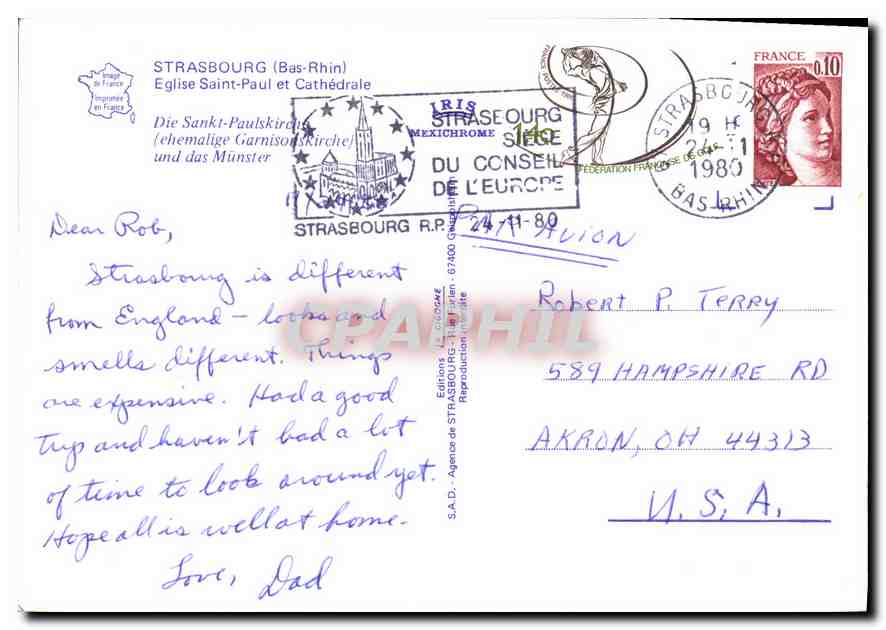 Image
de France
Imprimée
en France
STRASBOURG (Bas-Rhin)
Eglise Saint-Paul et Cathédrale
Die Sankt-Paulskirche
(ehemalige Garnisonskirche)
und das Münster
IRIS
MEXICHROME
STRASBOURG
SIÈGE
DU CONSEIL
DE L'EUROPE
STRASBOURG R.P. 24-11-80
1,40
FÉDÉRATION FRANÇAISE DE
STRASBOURG R.P.
19 H
24-11
1980
BAS-RHIN
FRANCE
0,10
Dear Rob,
Strasbourg is different
from England - looks and
smells different. Things
are expensive. Had a good
trip and haven't had a lot
of time to look around yet.
Hope all is well at home.
Love, Dad
Editions la CIGOGNE
S.A.D. - Agence de STRASBOURG - Rue 67400
Reproduction interdite
PAR AVION
Robert P. Terry
589 HAMPSHIRE RD
AKRON, OH 44313
U.S.A.
CPAPHIL